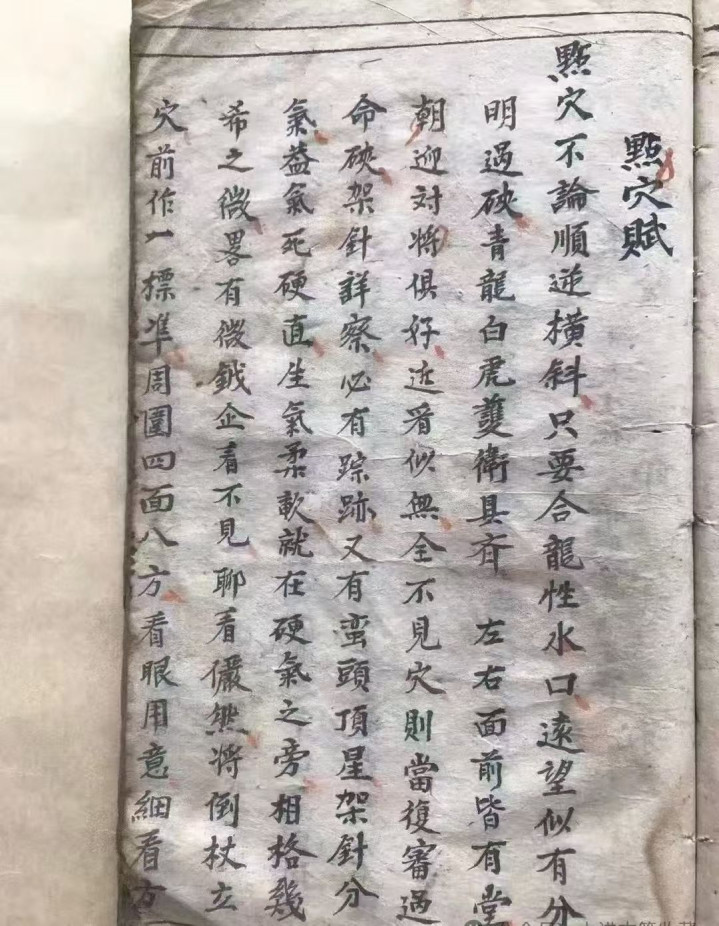 點穴賦
點穴不論順逆橫斜只要合龍性水口遠望似有分
明過硤青龍白虎護衛具齊 左右面前皆有堂
朝迎對將俱好近看似無全不見穴則當復審過
命硤架針詳察必有踪跡又有蛮頭頂星架針分
氣蓋氣死硬直生氣柔軟就在硬氣之旁相格幾
希之微畧有微鋮企看不見聊看儼然將倒杖立
穴前作一標準周圍四面八方看眼用意細看方